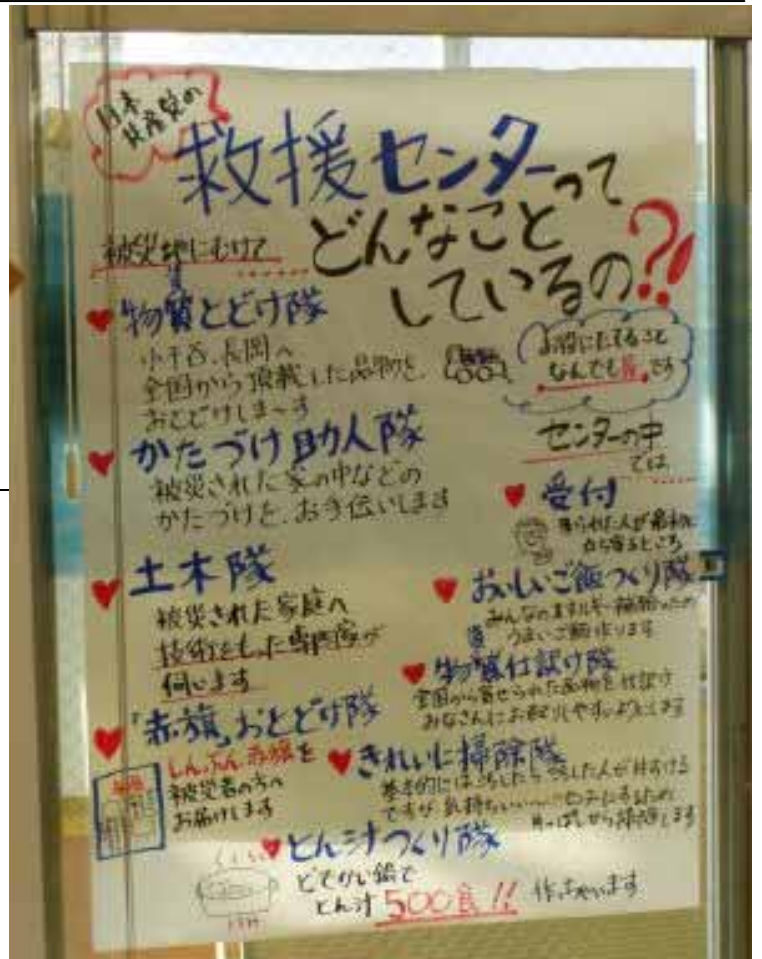 日本
共産党の
救援センターって
どんなこと
しているの?!
被災地にむけて
物資とどけ隊
小千谷、長岡へ
全国から頂載した品物を、
おとどけしま～す
お役にたてること
なんでも隊です
かたづけ助人隊
被災された家の中などの
かたづけを、お手伝いします
土木隊
被災された家庭へ
技術をもった専門家が
伺います
「赤旗」おとどけ隊
しんぶん赤旗を
被災者の方へ
お届けします
センターの中
では
受付
来られた人が最初に
立ち寄るところ
おいしいご飯つくり隊
みんなのエネルギー補給のため
うまいご飯作ります
物資仕訳け隊
全国から寄せられた品物を仕訳け
みなさんにお配りしやすいようにします
きれいに掃除隊
基本的には汚したら汚した人が片すける
ですが、気持ちいい
片っぱしから掃除します
とん汁つくり隊
どでかい鍋で
とん汁500食!!作っちゃいます